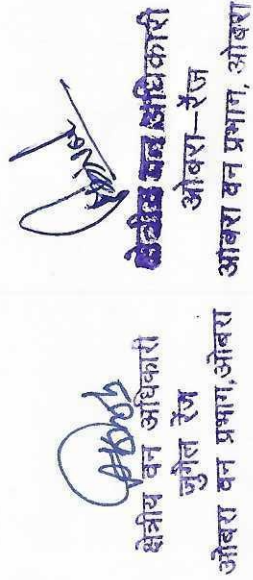 क्षेत्रीय वन अधिकारी
जुगैल रेंज
ओबरा वन प्रभाग,ओबरा
क्षेत्रीय वन अधिकारी
ओबरा-रेंज
ओबरा वन प्रभाग, ओबरा